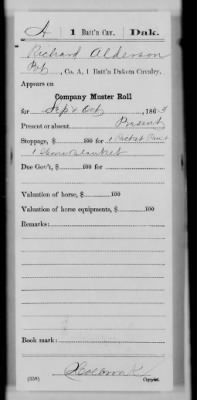 A | 1 Batt'n Cav. | Dak.
Richard Alderson
Pvt, Co. A, 1 Batt'n Dakota Cavalry.
Appears on
Company Muster Roll
for Sept & Oct, 186
Present or absent Present
Stoppage, $ 100 for 1
1 Blanket
Due Gov't, $ 100 for
Valuation of horse, $ 100
Valuation of horse equipments, $ 100
Remarks:
Book mark:
Holbrook
(358) Copyist.